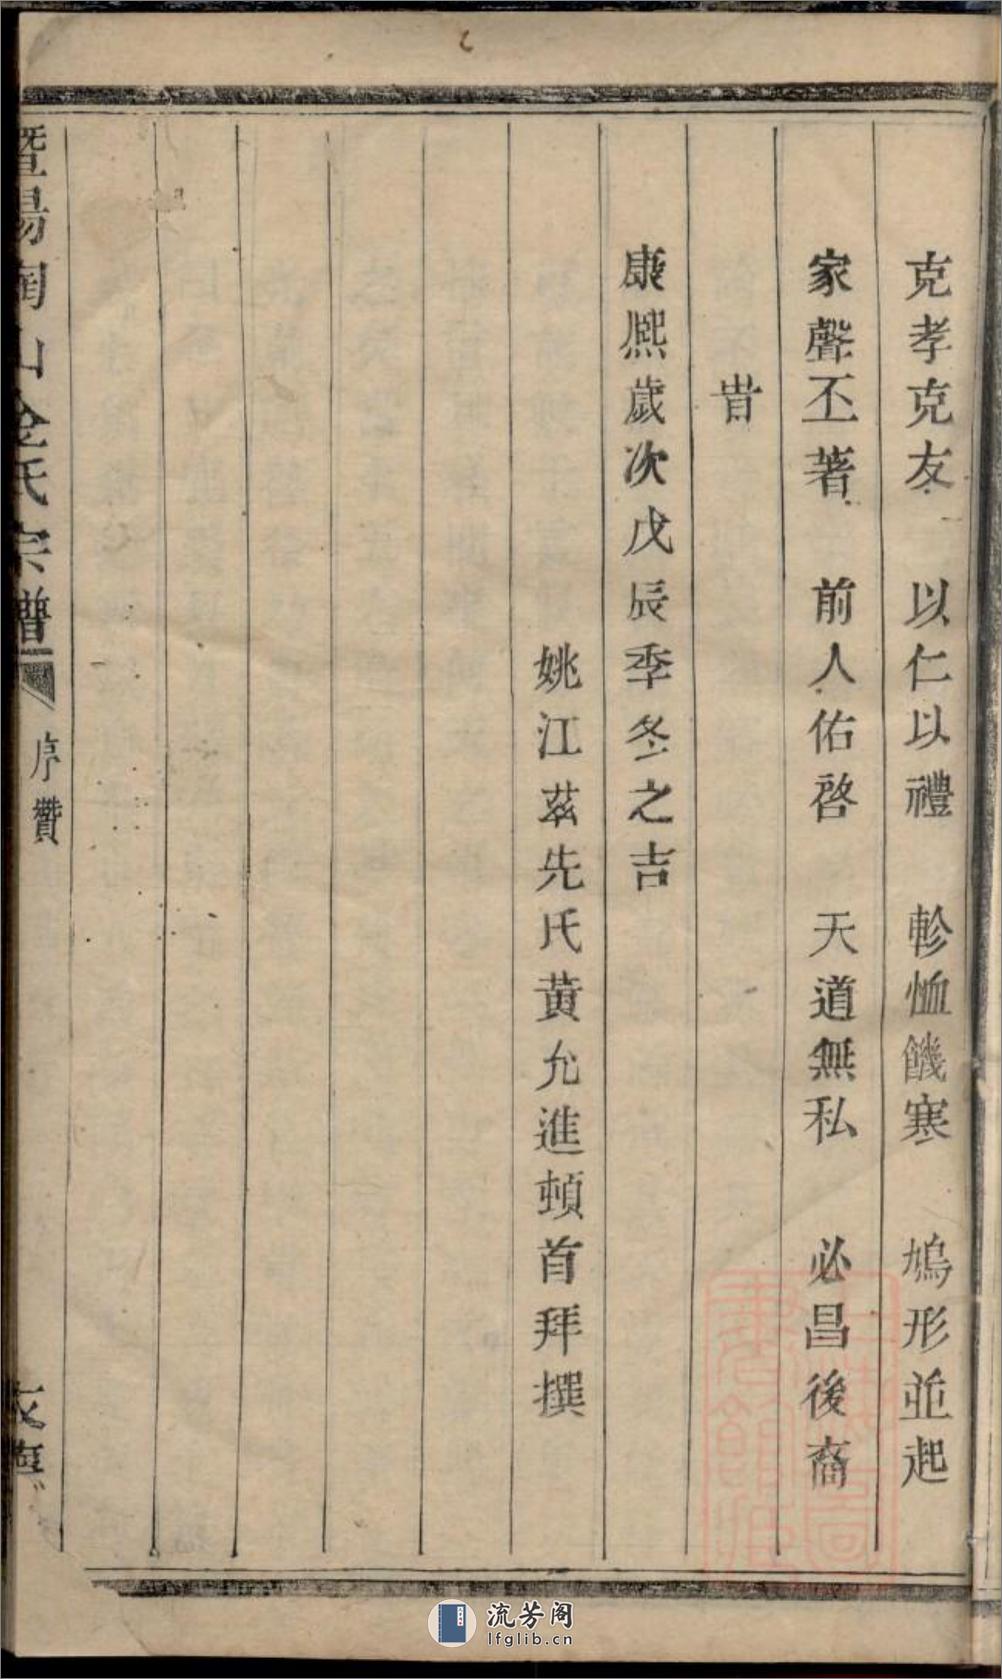 克孝克友 以仁以禮 軫恤饑寒 鳩形並起
家聲丕著 前人佑啓 天道無私 必昌後裔
旹
康熙歲次戊辰季冬之吉
姚江茲先氏黃允進頓首拜撰
暨陽南山金氏宗譜
序贊
流芳阁
lfglib.cn